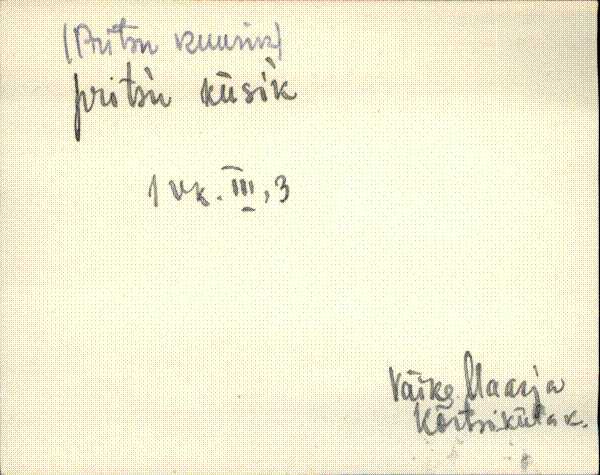 (Pritsu kuusik)
pritsu kūsik
1 vk. III, 3
Väike Maarja
Kõrtsiküla k.